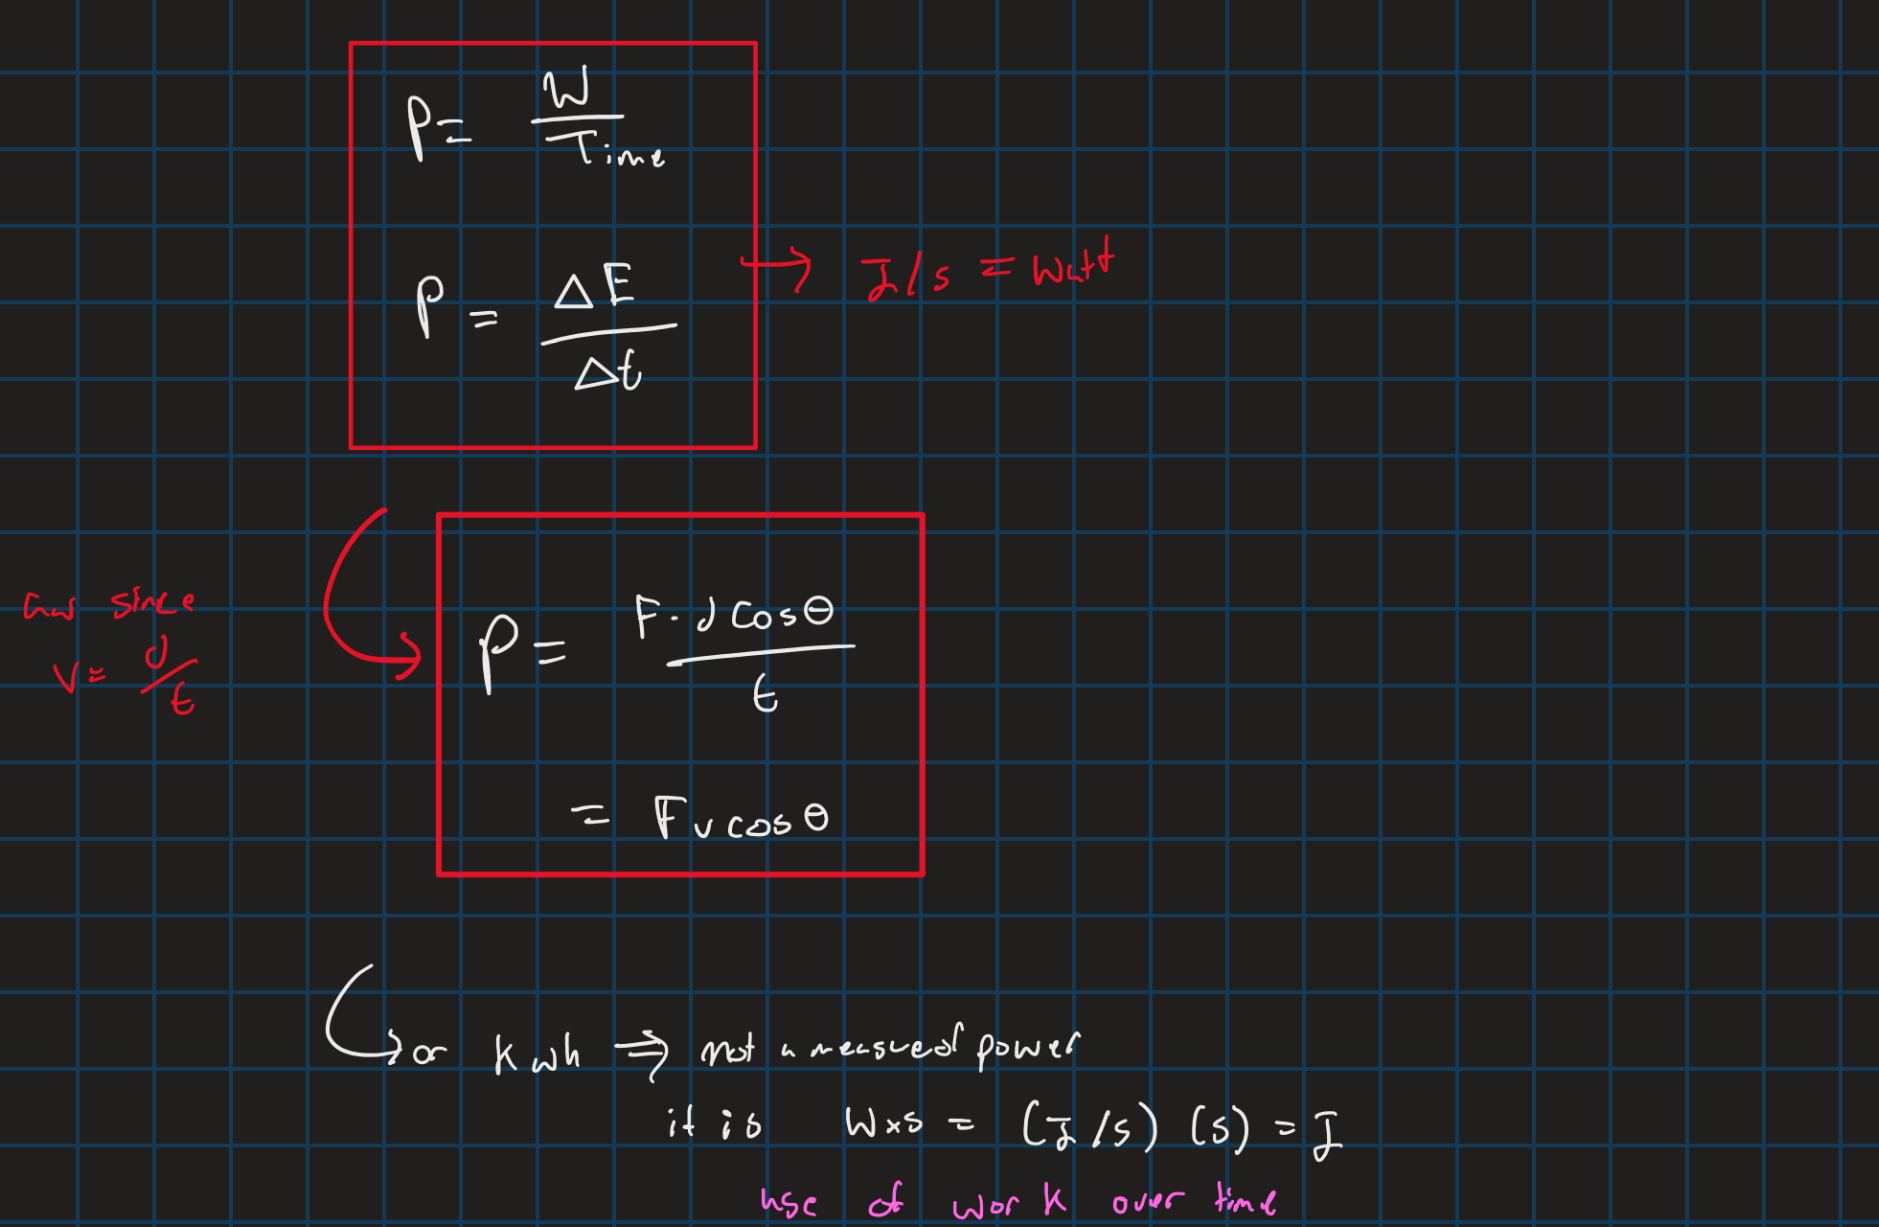 P = W / Time
P = ΔE / Δt
→ J/s = Watt
since
v = d/t
P = F · d cosθ / t
= Fv cosθ
or kwh ⇒ not a measure of power
it is W×s = (J/s) (s) = J
use of work over time